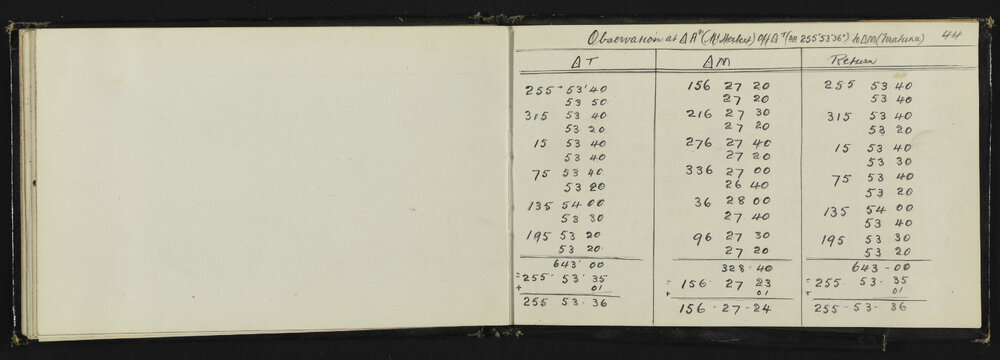 Observation at Δ A° (Mt Herbert) Off Δ T (on 255°53'36") to ΔM 44
Δ T ΔM Return
255 - 53' 40 156 27 20 255 53 40
53 50 27 20 53 40
315 53 40 216 27 30 315 53 40
53 20 27 20 53 20
15 53 40 276 27 40 15 53 40
53 40 27 20 53 30
75 53 40 336 27 00 75 53 40
53 20 26 40 53 20
135 54 00 36 28 00 135 54 00
53 30 27 40 53 40
195 53 20 96 27 30 195 53 30
53 20 27 20 53 20
643' 00 328 - 40 643 - 00
= 255 - 53' 35 = 156 - 27 23 = 255 - 53 - 35
+ 01 + 01 + 01
255 53 - 36 156 - 27 - 24 255 - 53 - 36